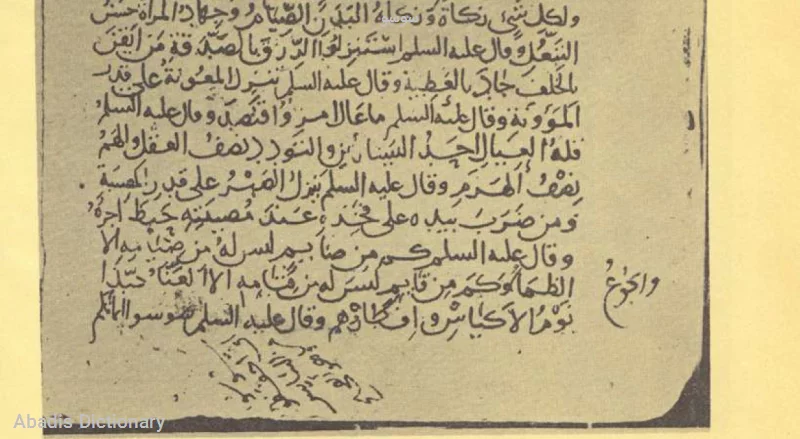 ولكل شيء زكاة وزكاة البدن الصيام وجهاد المرأة حسن
التبعل وقال عليه السلم استنزلوا الرزق بالصدقة من ايقن
بالخلف جاد بالعطية وقال عليه السلم تنزل المعونة على قدر
المؤونة وقال عليه السلم ما عال امرؤ اقتصد وقال عليه السلم
قلة العيال احد اليسارين والتودد نصف العقل والهم
نصف الهرم وقال عليه السلم ينزل الصبر على قدر المصيبة
ومن ضرب بيده على فخذه عند مصيبته حبط اجره
وقال عليه السلم كم من صايم ليس له من صيامه الا
الظمأ وكم من قايم ليس له من قيامه الا العناء حبذا
والجوع
نوم الاكياس وافطارهم وقال عليه السلم سوسوا ايمانكم
Abadis Dictionary